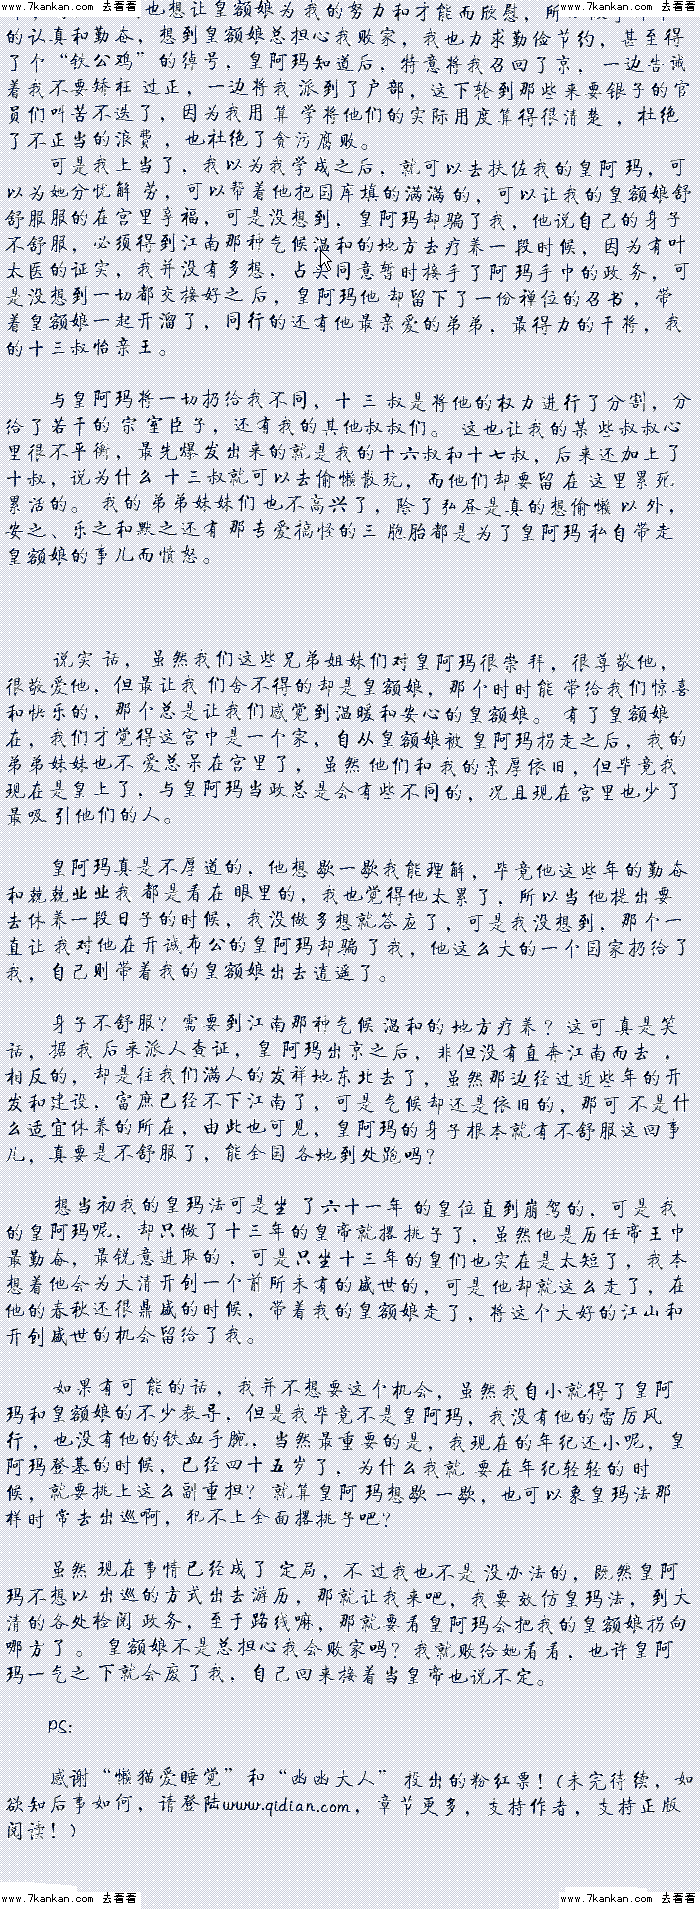 www.7kankan.com 去看看 www.7kankan.com 去看看
也想让皇额娘为我的努力和才能而欣慰，所
的认真和勤奋，想到皇额娘总担心我败家，我也力求勤俭节约，甚至得
了个“铁公鸡”的绰号，皇阿玛知道后，特意将我召回了京，一边告诫
着我不要矫枉过正，一边将我派到了户部，这下轮到那些来要银子的官
员们叫苦不迭了，因为我用算学将他们的实际用度算得很清楚，杜绝
了不正当的浪费，也杜绝了贪污腐败。
可是我上当了，我以为我学成之后，就可以去扶佐我的皇阿玛，可
以为她分忧解劳，可以帮着他把国库填的满满的，可以让我的皇额娘舒
舒服服的在宫里享福，可是没想到，皇阿玛却骗了我，他说自己的身子
不舒服，必须得到江南那种气候温和的地方去疗养一段时候，因为有叶
太医的证实，我并没有多想，点头同意暂时接手了阿玛手中的政务，可
是没想到一切都交接好之后，皇阿玛他却留下了一份禅位的召书，带
着皇额娘一起开溜了，同行的还有他最亲爱的弟弟，最得力的干将，我
的十三叔怡亲王。
与皇阿玛将一切扔给我不同，十三叔是将他的权力进行了分割，分
给了若干的宗室臣子，还有我的其他叔叔们。这也让我的某些叔叔心
里很不平衡，最先爆发出来的就是我的十六叔和十七叔，后来还加上了
十叔，说为什么十三叔就可以去偷懒散玩，而他们却要留在这里累死
累活的。我的弟弟妹妹们也不高兴了，除了弘昼是真的想偷懒以外，
安之、乐之和默之还有那专爱搞怪的三胞胎都是为了皇阿玛私自带走
皇额娘的事儿而愤怒。
说实话，虽然我们这些兄弟姐妹们对皇阿玛很崇拜，很尊敬他，
很敬爱他，但最让我们舍不得的却是皇额娘，那个时时能带给我们惊喜
和快乐的，那个总是让我们感觉到温暖和安心的皇额娘。有了皇额娘
在，我们才觉得这宫中是一个家，自从皇额娘被皇阿玛拐走之后，我的
弟弟妹妹也不爱总呆在宫里了，虽然他们和我的亲厚依旧，但毕竟我
现在是皇上了，与皇阿玛当政总是会有些不同的，况且现在宫里也少了
最吸引他们的人。
皇阿玛真是不厚道的，他想歇一歇我能理解，毕竟他这些年的勤奋
和兢兢业业我都是看在眼里的，我也觉得他太累了，所以当他提出要
去休养一段日子的时候，我没做多想就答应了，可是我没想到，那个一
直让我对他在开诚布公的皇阿玛却骗了我，他这么大的一个国家扔给了
我，自己则带着我的皇额娘出去逍遥了。
身子不舒服？需要到江南那种气候温和的地方疗养？这可真是笑
话，据我后来派人查证，皇阿玛出京之后，非但没有直奔江南而去，
相反的，却是往我们满人的发祥地东北去了，虽然那边经过近些年的开
发和建设，富庶已经不下江南了，可是气候却还是依旧的，那可不是什
么适宜休养的所在，由此也可见，皇阿玛的身子根本就有不舒服这回事
儿，真要是不舒服了，能全国各地到处跑吗？
想当初我的皇玛法可是坐了六十一年的皇位直到崩驾的，可是我
的皇阿玛呢，却只做了十三年的皇帝就撂挑子了，虽然他是历任帝王中
最勤奋，最锐意进取的，可是只坐十三年的皇们也实在是太短了，我本
想着他会为大清开创一个前所未有的盛世的，可是他却就这么走了，在
他的春秋还很鼎盛的时候，带着我的皇额娘走了，将这个大好的江山和
开创盛世的机会留给了我。
如果有可能的话，我并不想要这个机会，虽然我自小就得了皇阿
玛和皇额娘的不少教导，但是我毕竟不是皇阿玛，我没有他的雷厉风
行，也没有他的铁血手腕，当然最重要的是，我现在的年纪还小呢，皇
阿玛登基的时候，已经四十五岁了，为什么我就要在年纪轻轻的时
候，就要挑上这么副重担？就算皇阿玛想歇一歇，也可以象皇玛法那
样时常去出巡啊，犯不上全面撂挑子吧？
虽然现在事情已经成了定局，不过我也不是没办法的，既然皇阿
玛不想以出巡的方式出去游历，那就让我来吧，我要效仿皇玛法，到大
清的各处检阅政务，至于路线嘛，那就要看皇阿玛会把我的皇额娘拐向
哪方了。皇额娘不是总担心我会败家吗？我就败给她看看，也许皇阿
玛一气之下就会废了我，自己回来接着当皇帝也说不定。
PS:
感谢“懒猫爱睡觉”和“幽幽大人”投出的粉红票！(未完待续，如
欲知后事如何，请登陆www.qidian.com，章节更多，支持作者，支持正版
阅读！)
www.7kankan.com 去看看 www.7kankan.com 去看看